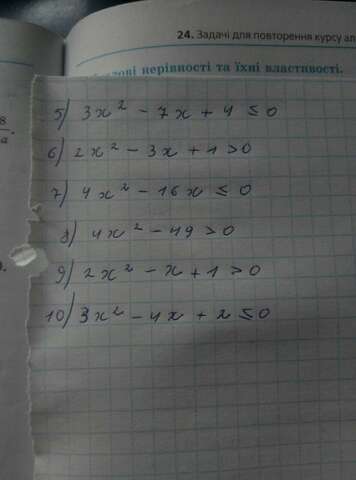 24. Задачі для повторення курсу ал
лові нерівності та їхні властивості.
8
a
5) 3x² - 7x + 4 ≤ 0
6) 2x² - 3x + 1 > 0
7) 4x² - 16x ≤ 0
8) 4x² - 49 > 0
9) 2x² - x + 1 > 0
10) 3x² - 4x + 2 ≤ 0